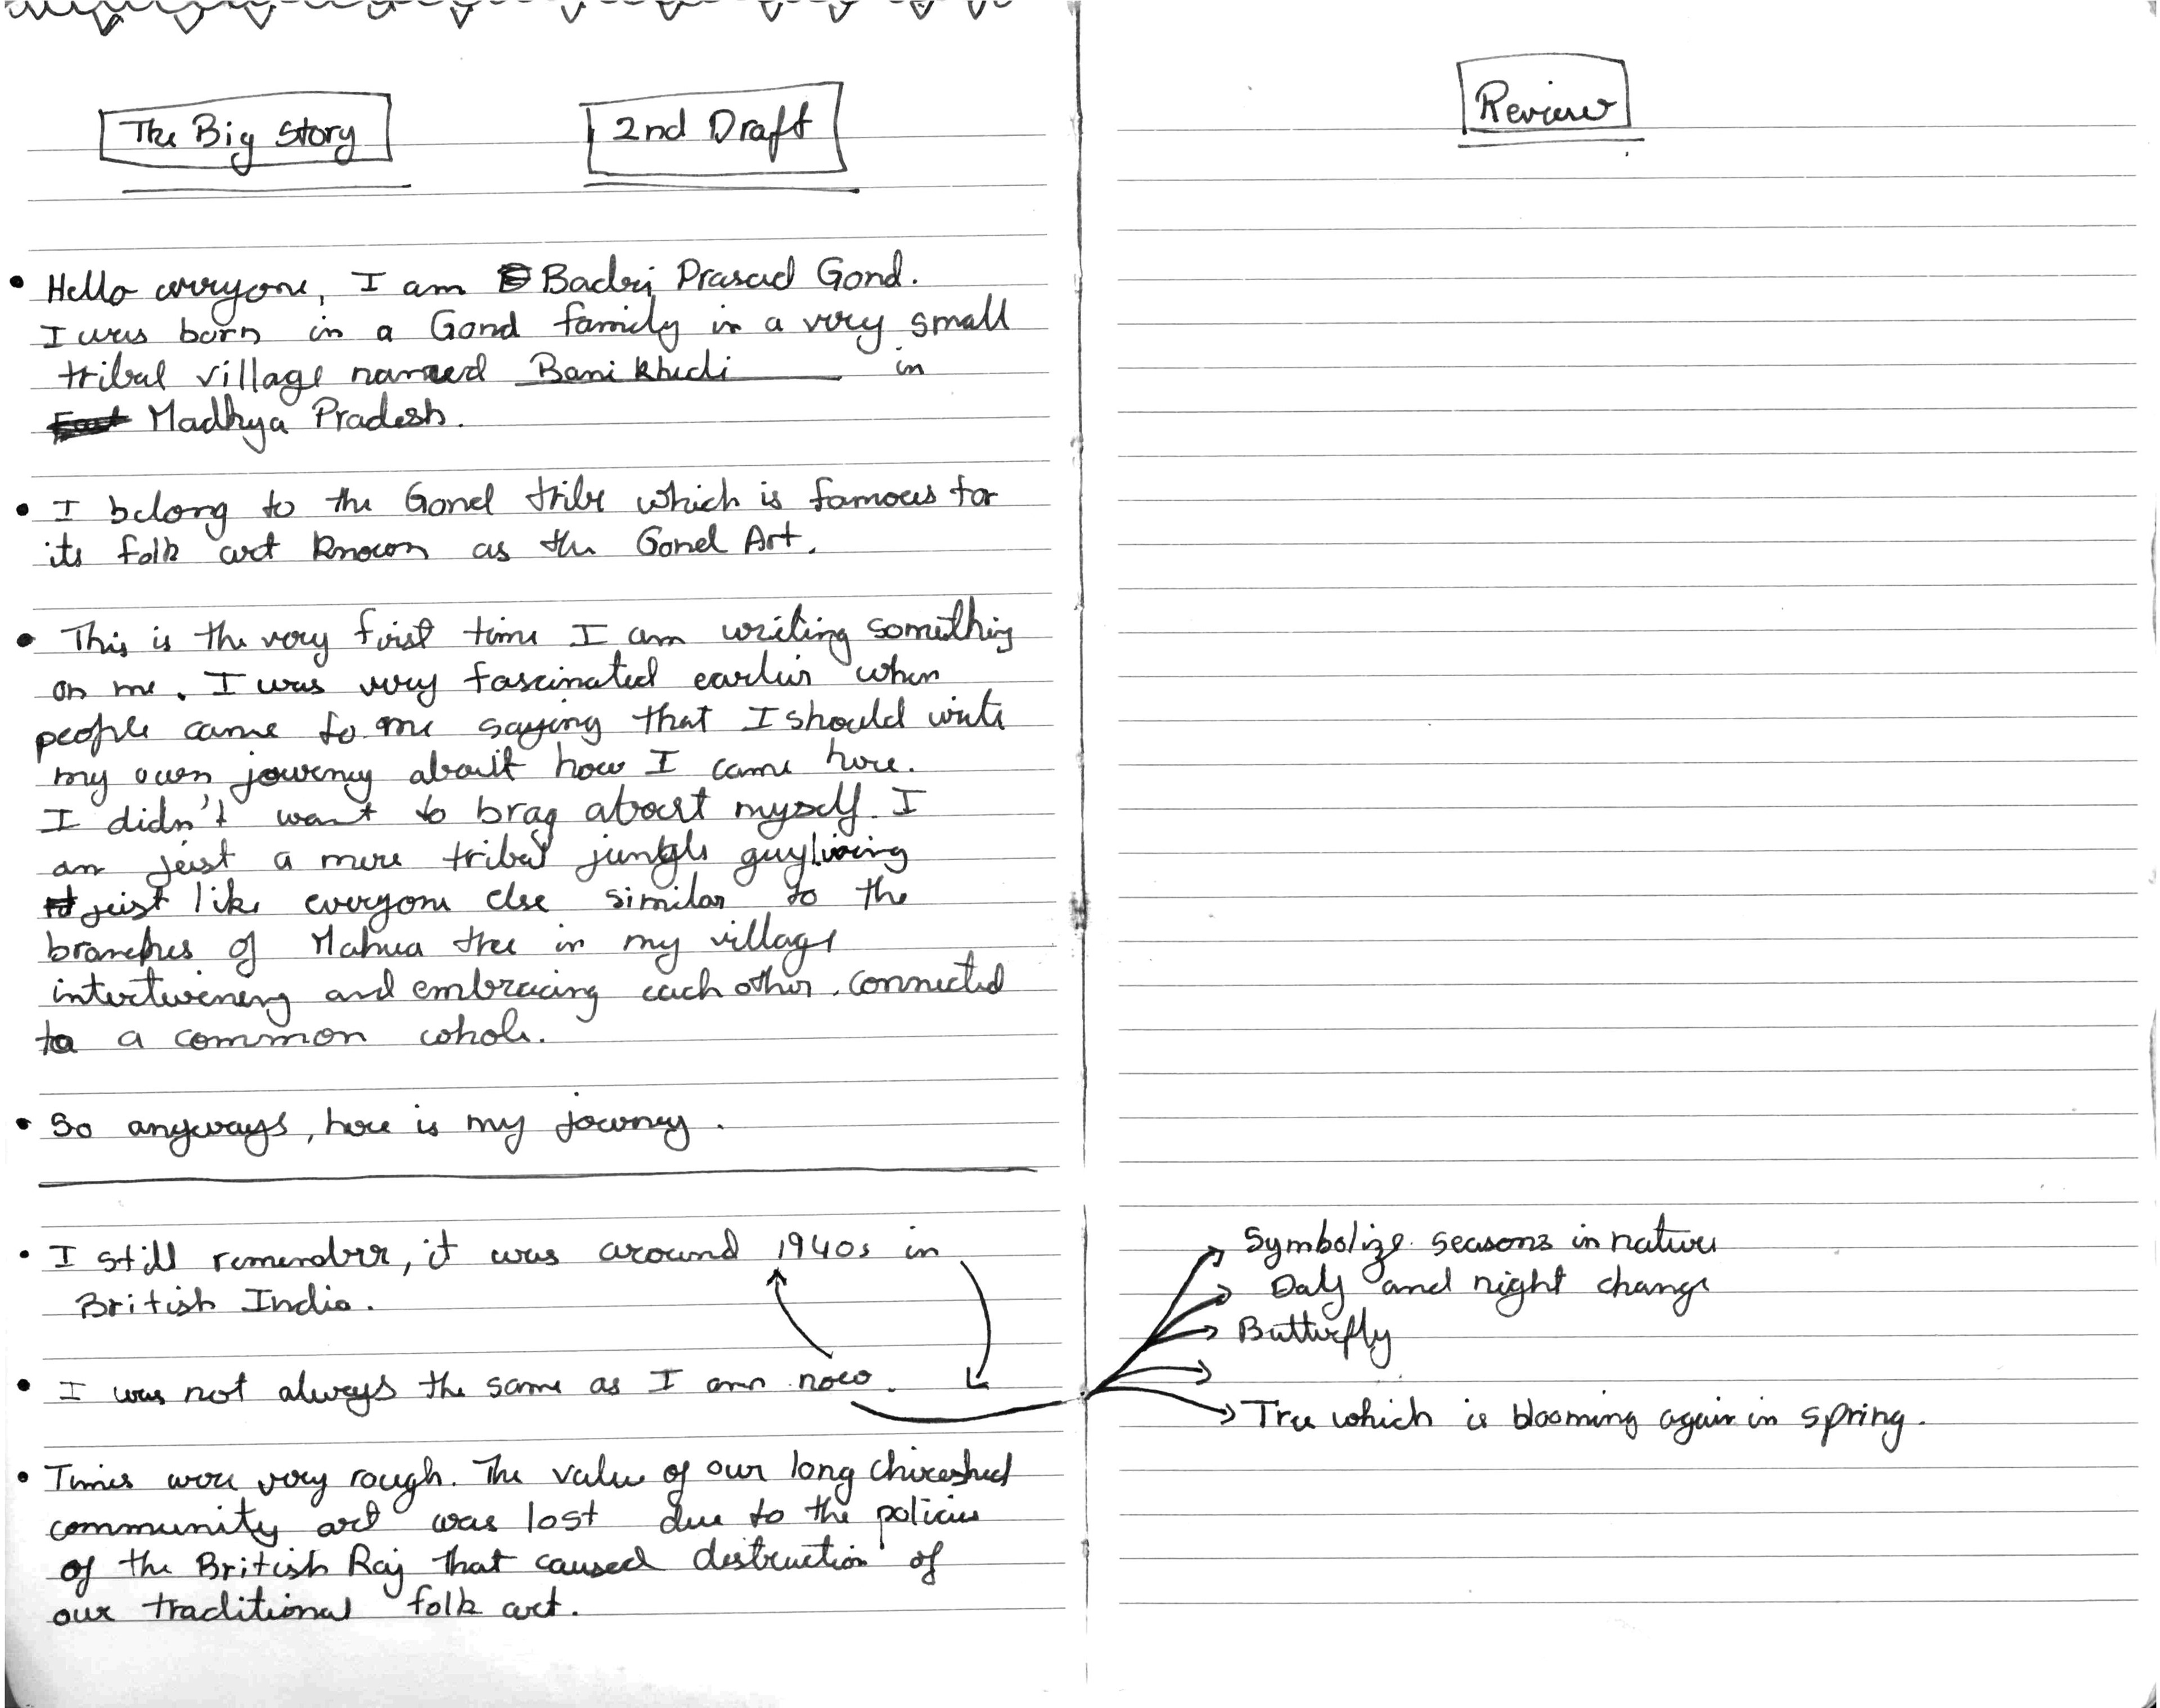 The Big Story
2nd Draft
• Hello everyone, I am Badri Prasad Gond.
I was born in a Gond family in a very small
tribal village named Bani khedi in
Madhya Pradesh.
• I belong to the Gond tribe which is famous for
its folk art known as the Gond Art.
• This is the very first time I am writing something
on me. I was very fascinated earlier when
people came to me saying that I should write
my own journey about how I came here.
I didn't want to brag about myself. I
am just a mere tribal jungle guy living
just like everyone else similar to the
branches of Mahua tree in my village
intertwening and embracing each other. connected
to a common whole.
• So anyways, here is my journey.
• I still remember, it was around 1940s in
British India.
• I was not always the same as I am now.
• Times were very rough. The value of our long chireshed
community art was lost due to the policies
of the British Raj that caused destruction of
our traditional folk art.
Review
Symbolize seasons in nature
Day and night change
Butterfly
Tree which is blooming again in spring.